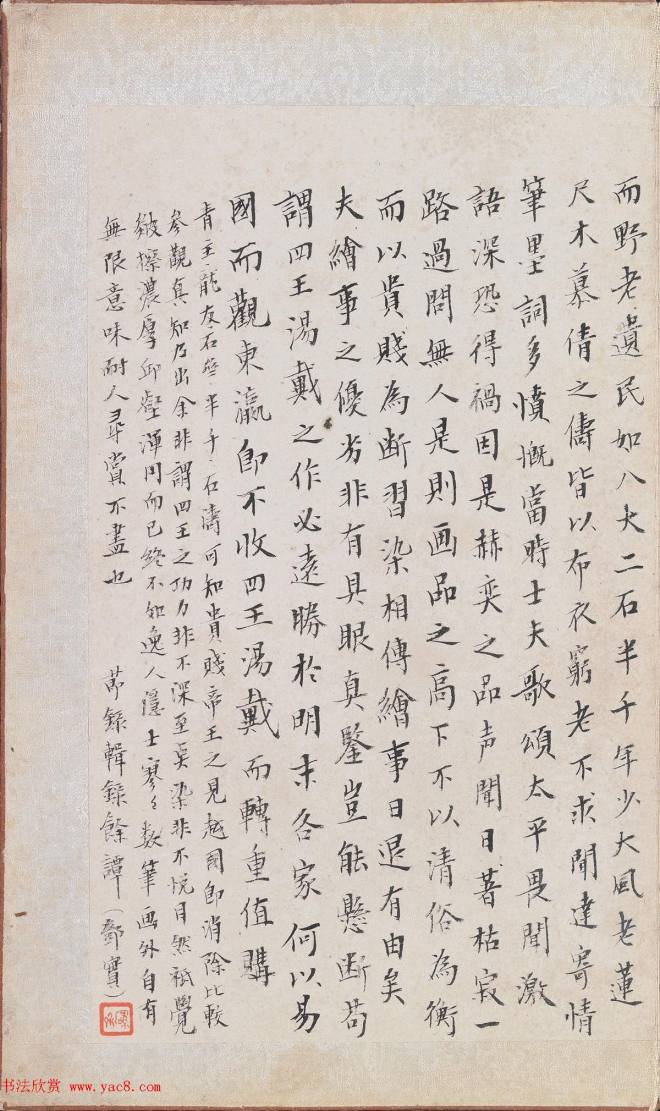 而野老遺民如八大二石半千年少大風老蓮
尺木慕倩之儔皆以布衣窮老不求聞達寄情
筆墨詞多憤慨當時士夫歌頌太平畏聞激
語深恐得禍因是赫奕之品声聞日著枯寂一
路過問無人是則画品之高下不以清俗為衡
而以貴賤為斷習染相傳繪事日退有由矣
夫繪事之優劣非有具眼真鑒豈能懸斷苟
謂四王湯戴之作必遠勝於明末各家何以易
國而觀東瀛即不收四王湯戴而轉重值購
青主龍友石谿半千石濤可知貴賤帝王之見越國即消除比較
參觀真知乃出余非謂四王之功力非不深至㸃染非不悅目然祗覺
皴擦濃厚邱壑渾円而已終不如逸人隱士寥々數筆画外自有
無限意味耐人尋賞不盡也
節錄輯錄餘譚（鄧實）
书法欣赏 www.yac8.com